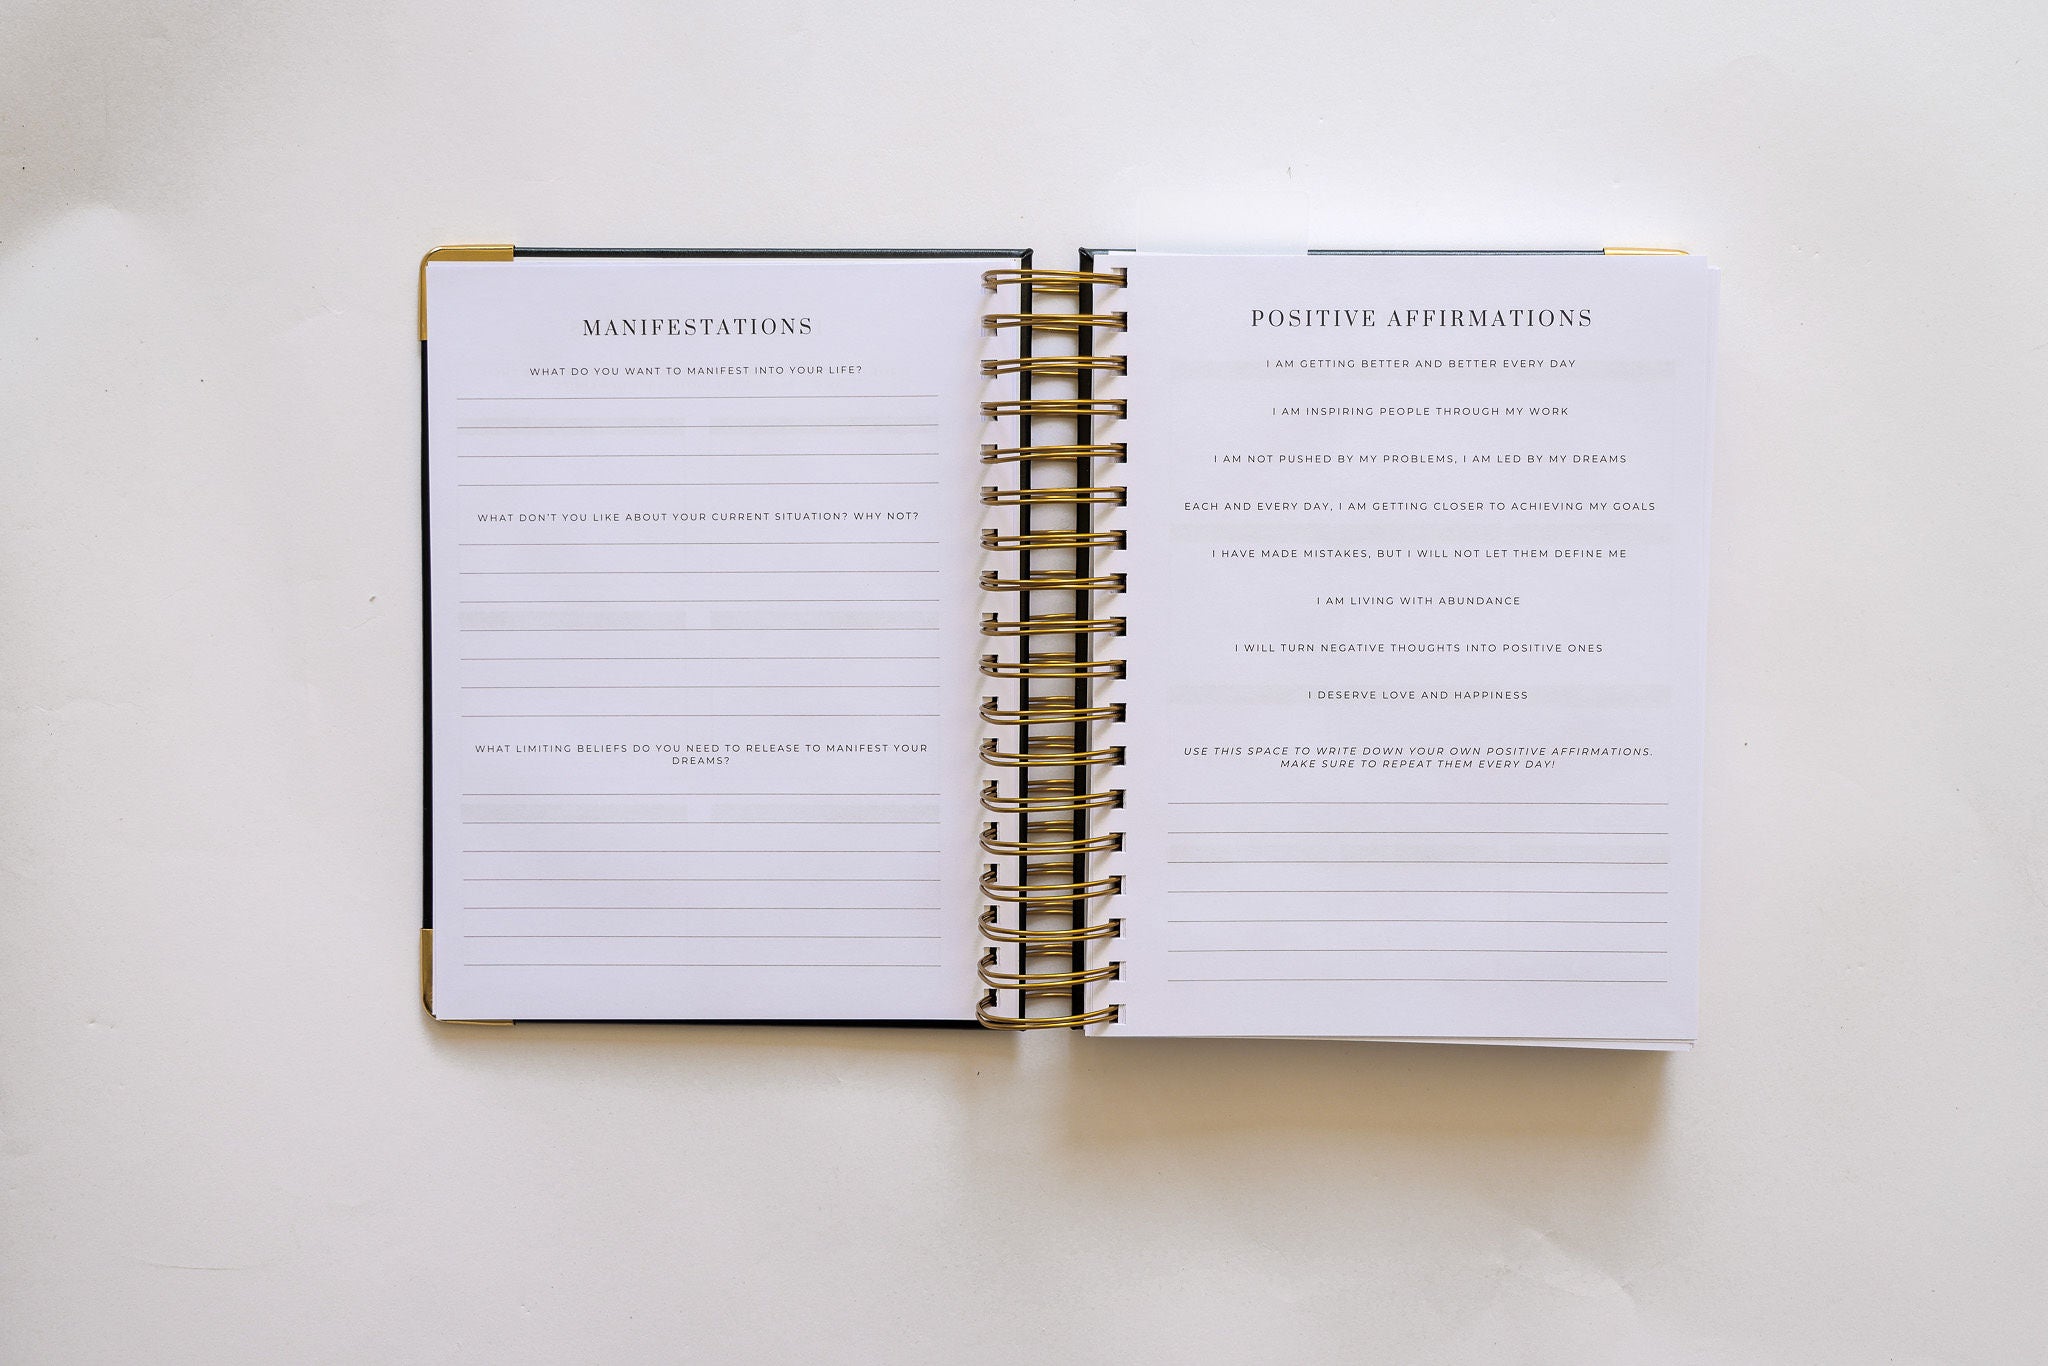 MANIFESTATIONS
WHAT DO YOU WANT TO MANIFEST INTO YOUR LIFE?
WHAT DON'T YOU LIKE ABOUT YOUR CURRENT SITUATION? WHY NOT?
WHAT LIMITING BELIEFS DO YOU NEED TO RELEASE TO MANIFEST YOUR
DREAMS?
POSITIVE AFFIRMATIONS
I AM GETTING BETTER AND BETTER EVERY DAY
I AM INSPIRING PEOPLE THROUGH MY WORK
I AM NOT PUSHED BY MY PROBLEMS, I AM LED BY MY DREAMS
EACH AND EVERY DAY, I AM GETTING CLOSER TO ACHIEVING MY GOALS
I HAVE MADE MISTAKES, BUT I WILL NOT LET THEM DEFINE ME
I AM LIVING WITH ABUNDANCE
I WILL TURN NEGATIVE THOUGHTS INTO POSITIVE ONES
I DESERVE LOVE AND HAPPINESS
USE THIS SPACE TO WRITE DOWN YOUR OWN POSITIVE AFFIRMATIONS.
MAKE SURE TO REPEAT THEM EVERY DAY!